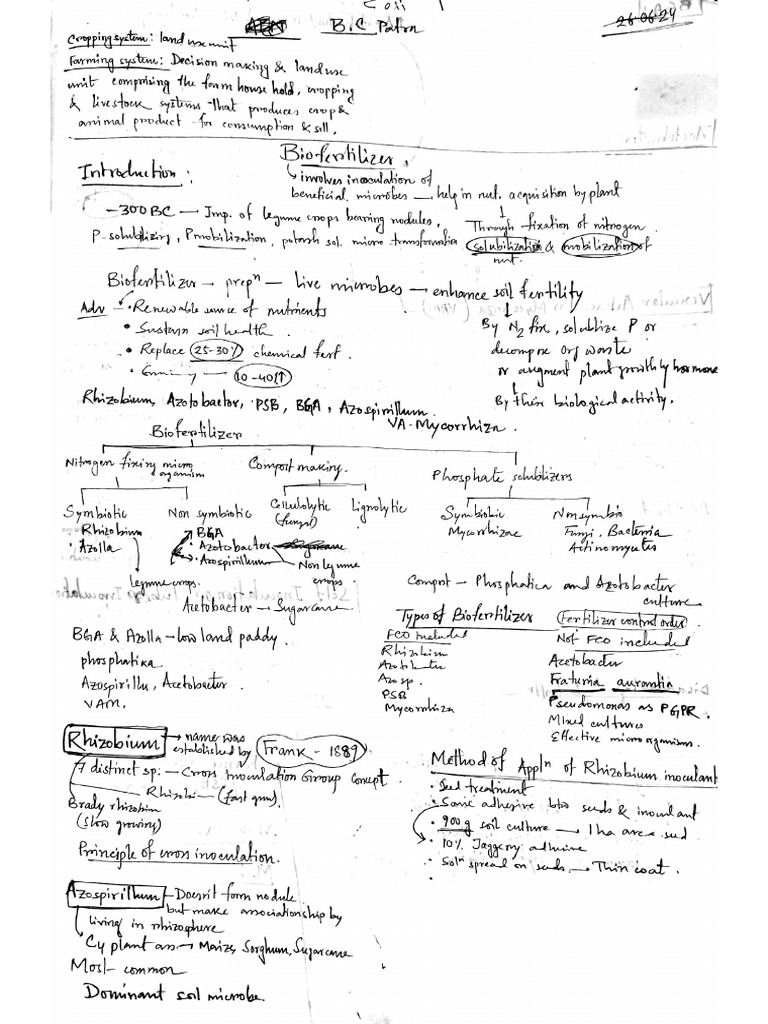 B.C Patra
26-06-24
Cropping system: land use unit
Farming system: Decision making & land use
unit comprising the farm house hold, cropping
& livestock systems that produces crop &
animal product for consumption & sell.
Biofertilizer
Introduction:
involves inoculation of
beneficial microbes — help in nut. acquisition by plant
-300 BC — Imp. of legume crops bearing nodules.
Through fixation of nitrogen
P-solubilizing, P mobilization, potash sol. micro transformation
solubilization & mobilization of
nut.
Biofertilizer → prepn — live microbes → enhance soil fertility
Adv • Renewable source of nutrients
• Sustain soil health.
• Replace 25-30% chemical fert.
10-40%↑
By N2 fix, solublize P or
decompose Org waste
or augment plant growth by hormone
By their biological activity.
Rhizobium, Azotobactor, PSB, BGA, Azospirillum.
VA-Mycorrhiza.
Biofertilizer
Nitrogen fixing micro
organism
Compost making.
Phosphate solubilizers
Symbiotic
Rhizobium
• Azolla
legume crops.
Non symbiotic
• BGA
• Azotobactor
• Azospirillum
Non legume
crops.
Acetobacter → Sugarcane
Cellulolytic
(fungal)
Lignolytic
Symbiotic
Mycorrhizae
Nonsymbio
Fungi, Bacteria
Actinomycetes
Compnt — Phosphatica and Azotobacter
culture
BGA & Azolla — low land paddy.
phosphatika
Azospirillu, Acetobacter.
VAM.
Types of Biofertilizer
Fertilizer control order
FCO Included
Rhizobium
Azotobacter
Azosp.
PSB
Mycorrhiza
Not FCO included
Acetobacter
Fraturia aurantia
Pseudomonas as PGPR.
Mixed cultures
Effective microorganism.
Rhizobium → name was
established by Frank - 1889
7 distinct sp: — Cross inoculation Group concept.
Rhizobi — (fast grow)
Brady rhizobium
(slow growing)
Principle of cross inoculation.
Method of Appln of Rhizobium inoculant
• Seed treatment
• Some adhesive btw seeds & inoculant
• 900g soil culture → 1 ha area seed
• 10% Jaggery adhesive
• Soln spread on seeds → Thin coat.
Azospirillum — Doesn't form nodule
but make associationship by
living in rhizosphere
C4 plant as → Maize, Sorghum, Sugarcane
Most common
Dominant soil microbe